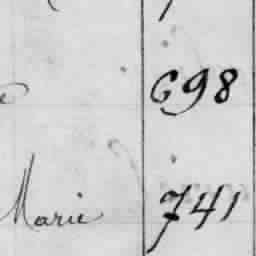 698
Marie 741